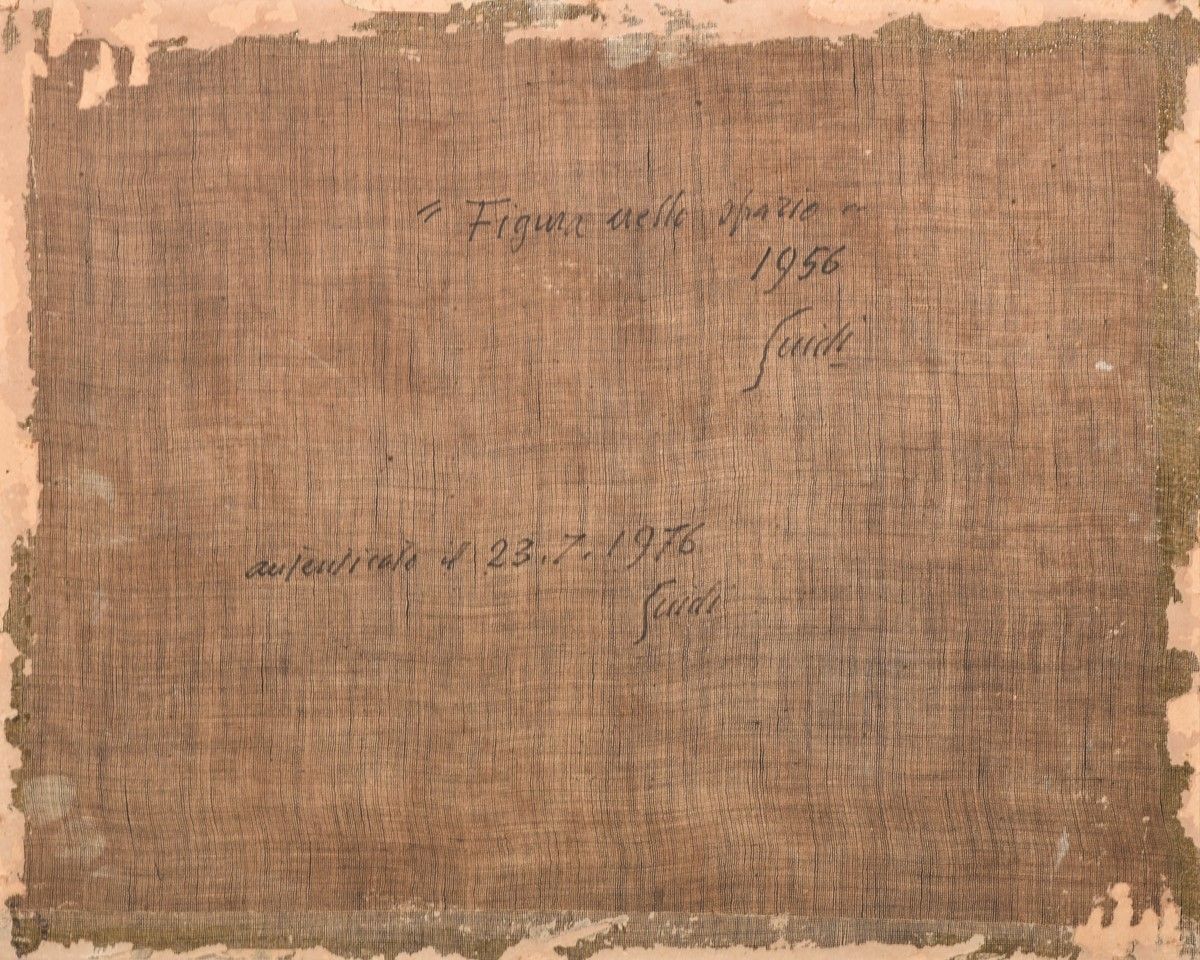 " Figura nello spazio "
1956
Guidi
autenticato il 23.7.1976
Guidi